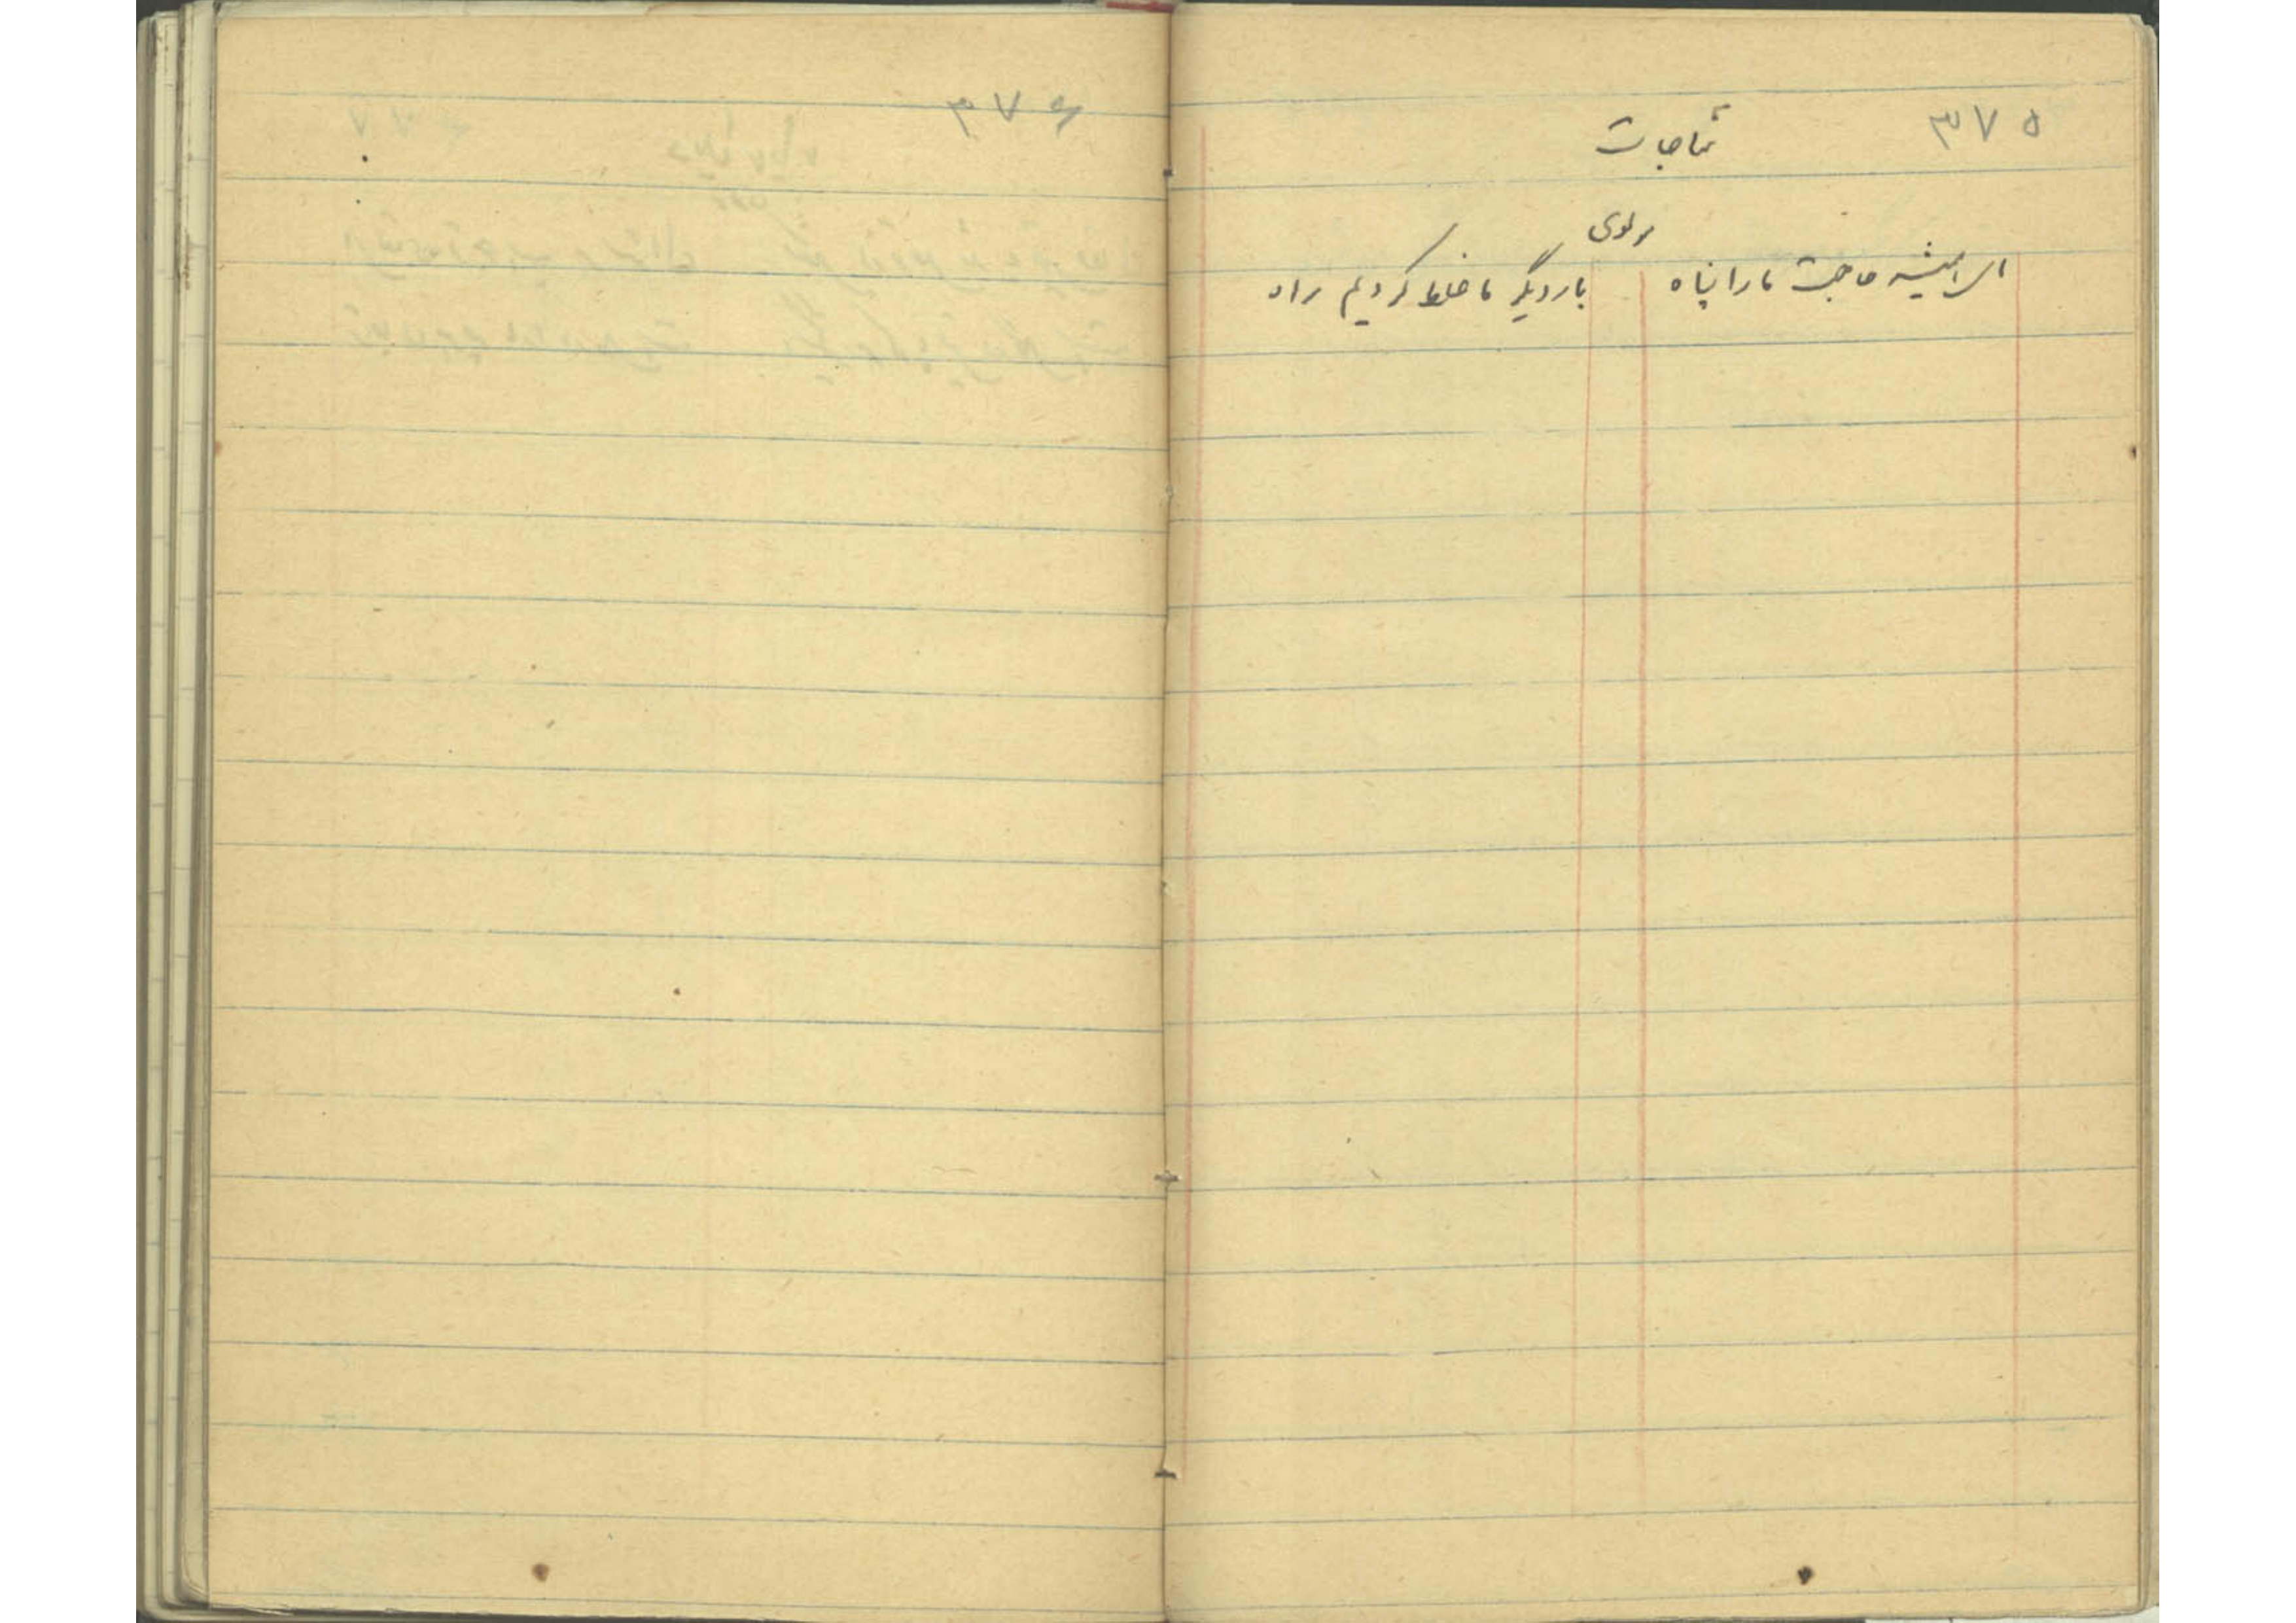 ۳۷۵
مناجات
مولوی
ای همیشه حاجت ما را پناه    بار دیگر ما غلط کردیم راه
۳۷۶